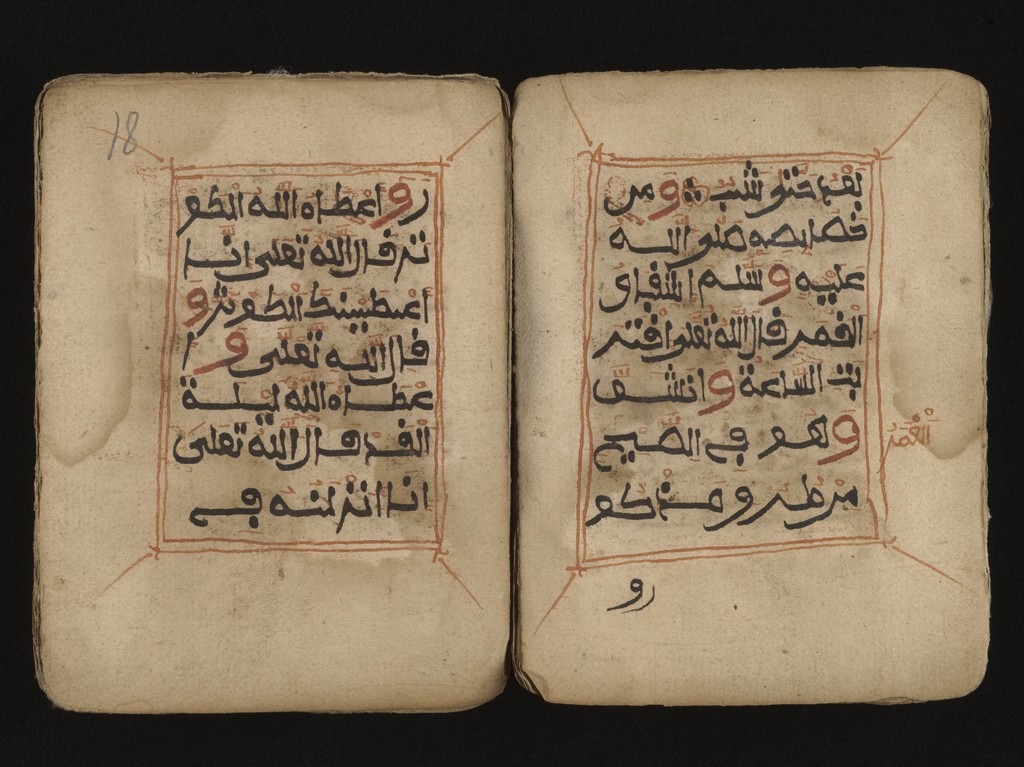 حتى ومن
خصايصه صلى الله
عليه وسلم انشقاق
القمر قال الله تعلى اقتر
بت الساعة وانشق
القمر
وهو في الصحيح
من طرق مذكو
رو
18
رو أعطاه الله الكو
ثر قال الله تعلى انا
أعطينك الكوثر و
قال الله تعلى وا
عطاه الله ليلة
القدر قال الله تعلى
انا انزلنه في